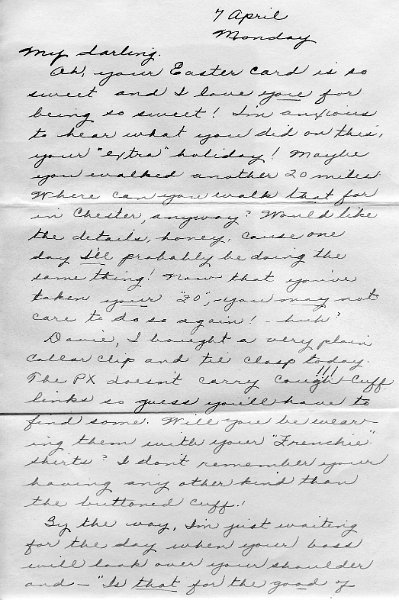 7 April
Monday
My darling.
Oh, your Easter card is so
sweet and I love you for
being so sweet! I'm anxious
to hear what you did on this,
your "extra" holiday! Maybe
you walked another 20 miles.
Where can you walk that far
in Chester, anyway? Would like
the details, honey, cause one
day I'll probably be doing the
same thing! Now that you've
taken your "20", you may not
care to do so again! - huh?
I bought a very plain
collar clip and tie clasp today.
The PX doesn't carry cough!!! Cuff
links so guess you'll have to
find some. Will you be wear-
ing them with your "Frenchie"
shirts? I don't remember your
having any other kind than
the buttoned cuff!
By the way, I'm just waiting
for the day when your boss
will look over your shoulder
and - "Is that for the good of